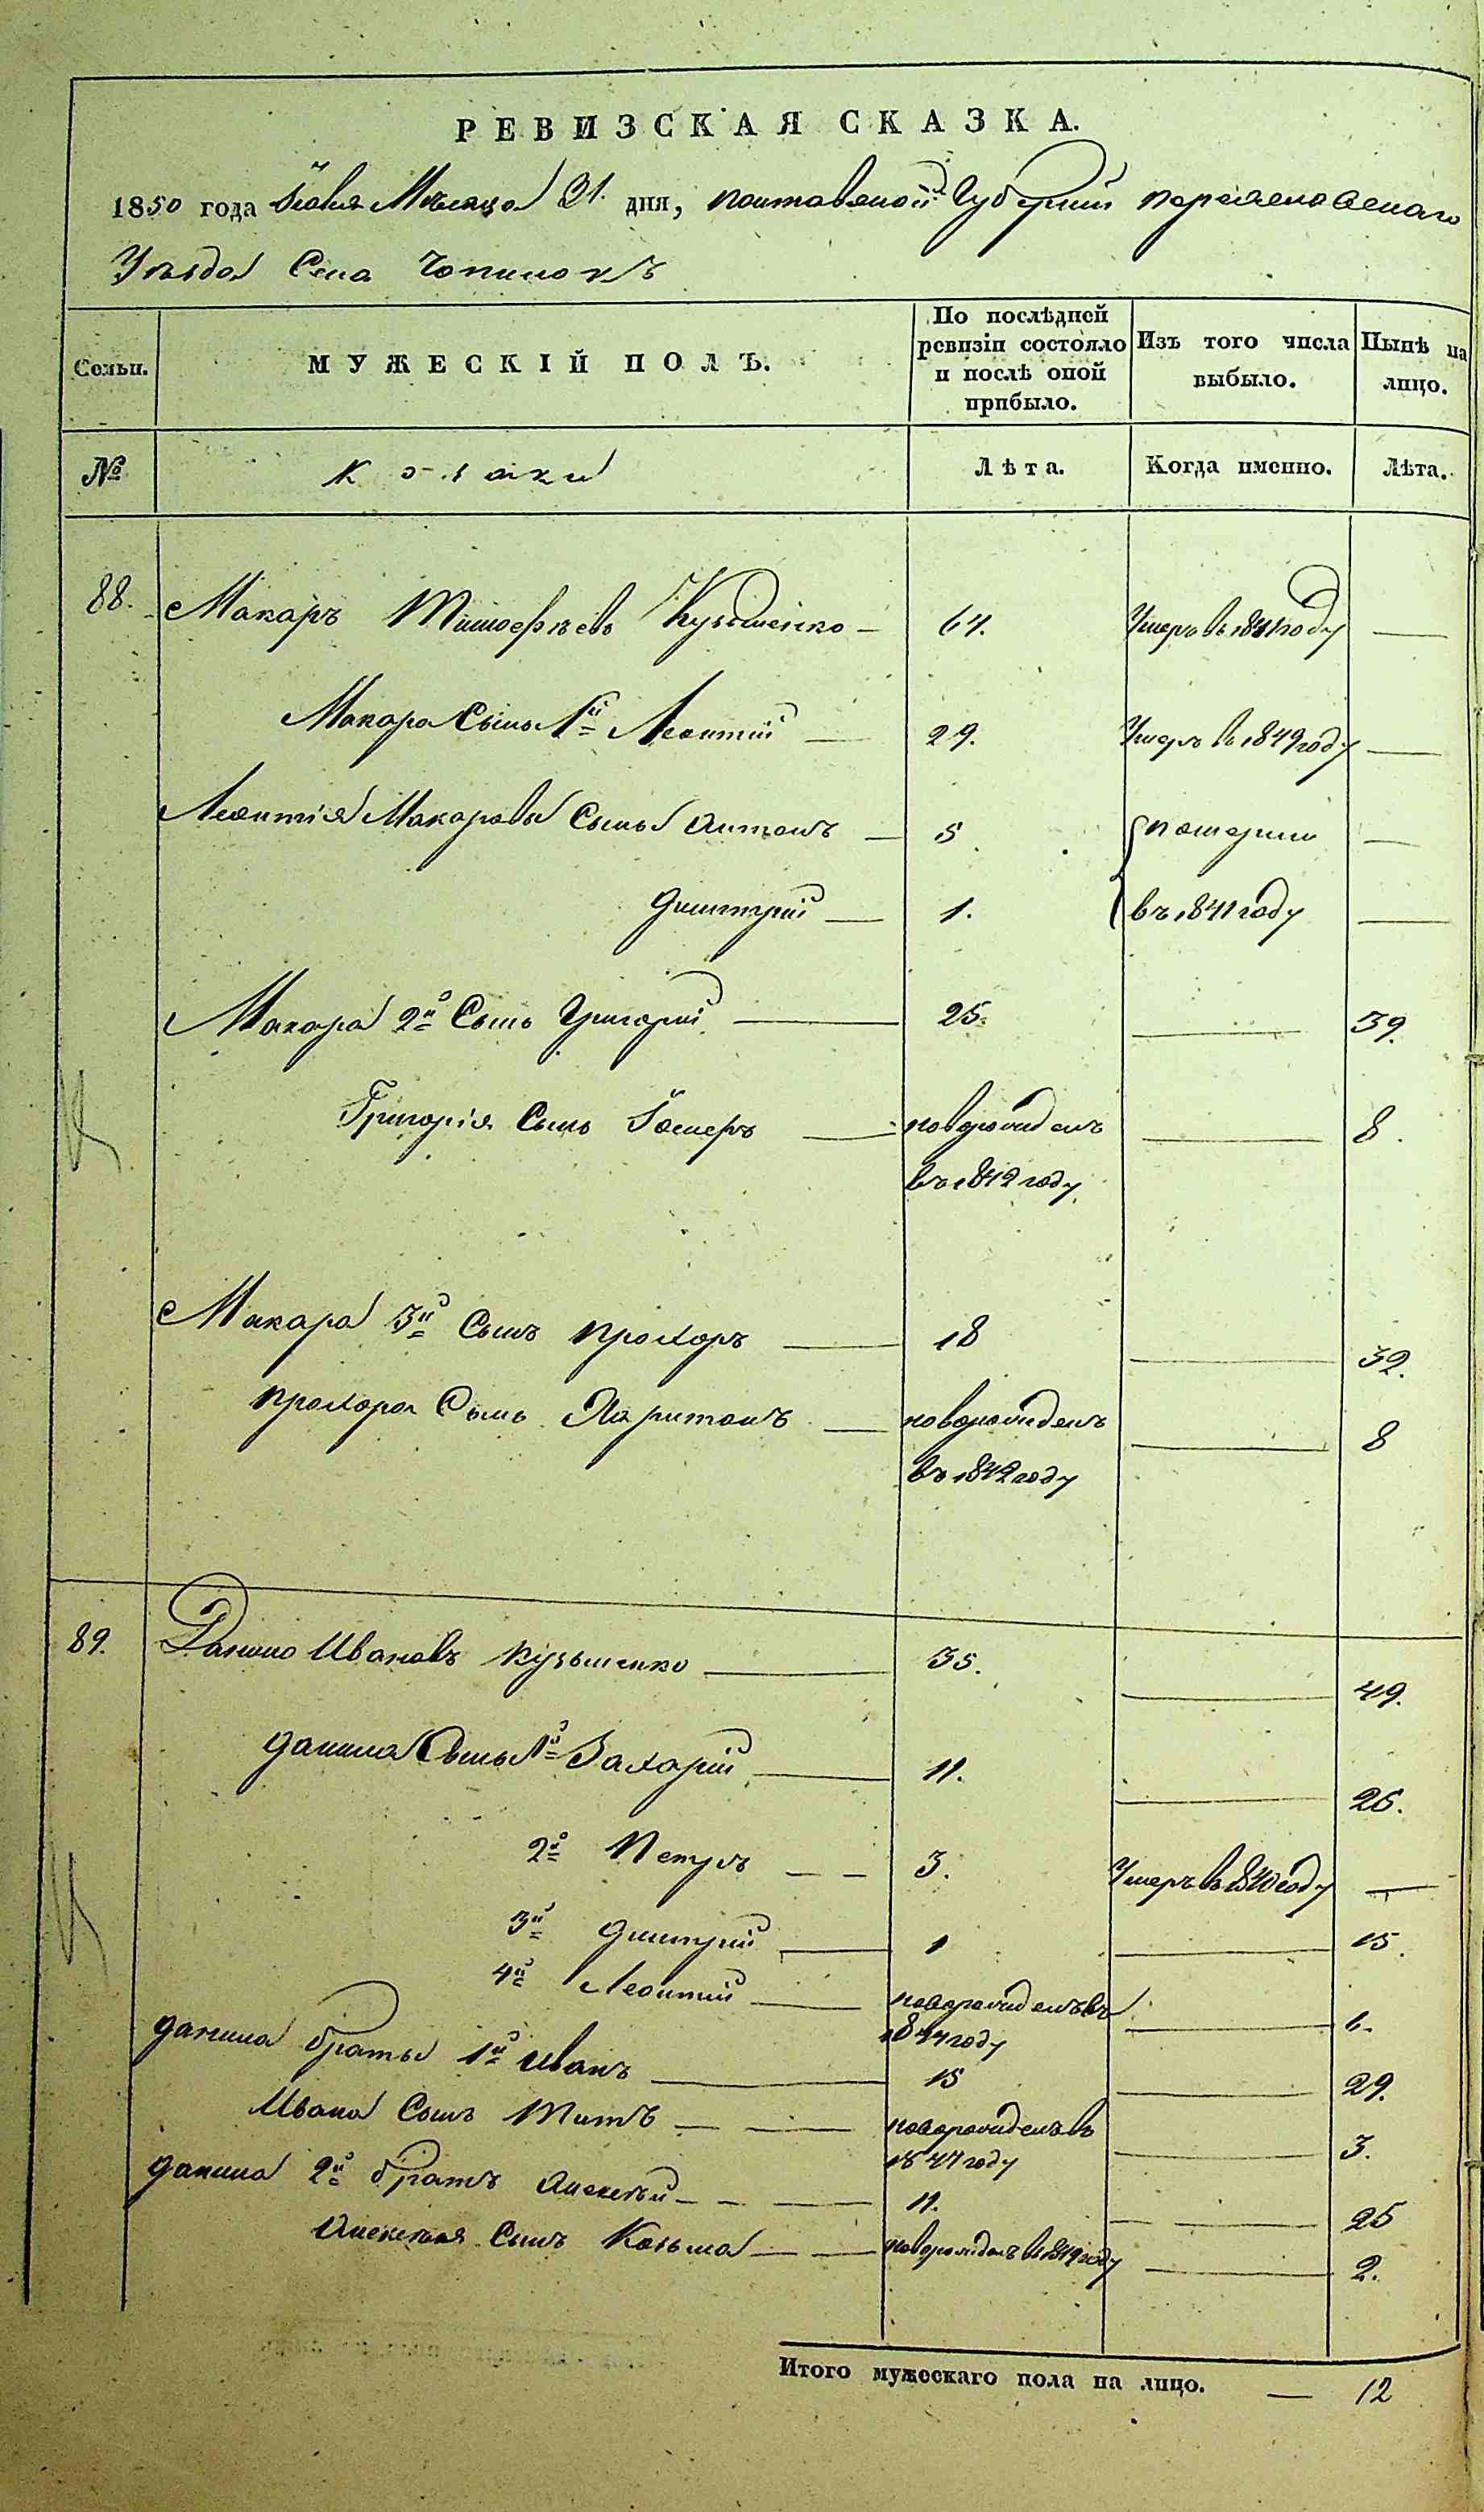 РЕВИЗСКАЯ СКАЗКА.
1850 года Іюля Мѣсяца 31. дня, Полтавской Губерніи Переяславскаго
Уѣзда Села Чопилокъ
Семьи. МУЖЕСКІЙ ПОЛЪ. По послѣдней ревизіи состояло и послѣ оной прибыло. Изъ того числа выбыло. Нынѣ на лицо.
№ Козаки Лѣта. Когда именно. Лѣта.
88. Макаръ Тимофѣевъ Кузьменко 64. Умеръ въ 1841 году —
Макара Сынъ 1й Леонтій 29. Умеръ въ 1849 году —
Леонтія Макарова Сынья Антонъ 5 померли —
Дмитрій 1. въ 1841 году —
Макара 2й Сынъ Григорій 25. — 39.
Григорія Сынъ новорожденъ — 8.
въ 1842 году
Макара 3й Сынъ Прохоръ 18 — 32.
Прохора Сынъ Харитонъ новорожденъ — 8
въ 1842 году
89. Данило Ивановъ Кузьменко 35. — 49.
Данила Сынъ 1й Захарій 11. — 25.
2й Петръ — — 3. Умеръ въ 1840 году —
3й Дмитрій 1 — 15.
4й Леонтій новорожденъ въ — 6.
1844 году
Данила братья 1й Иванъ 15 — 29.
Ивана Сынъ Титъ — — новорожденъ въ — 3.
1847 году
Данила 2й братъ Алексѣй — — 11. — 25
Алексѣя Сынъ Козьма — — новорожденъ в 1849 году — 2.
Итого мужескаго пола на лицо. — 12